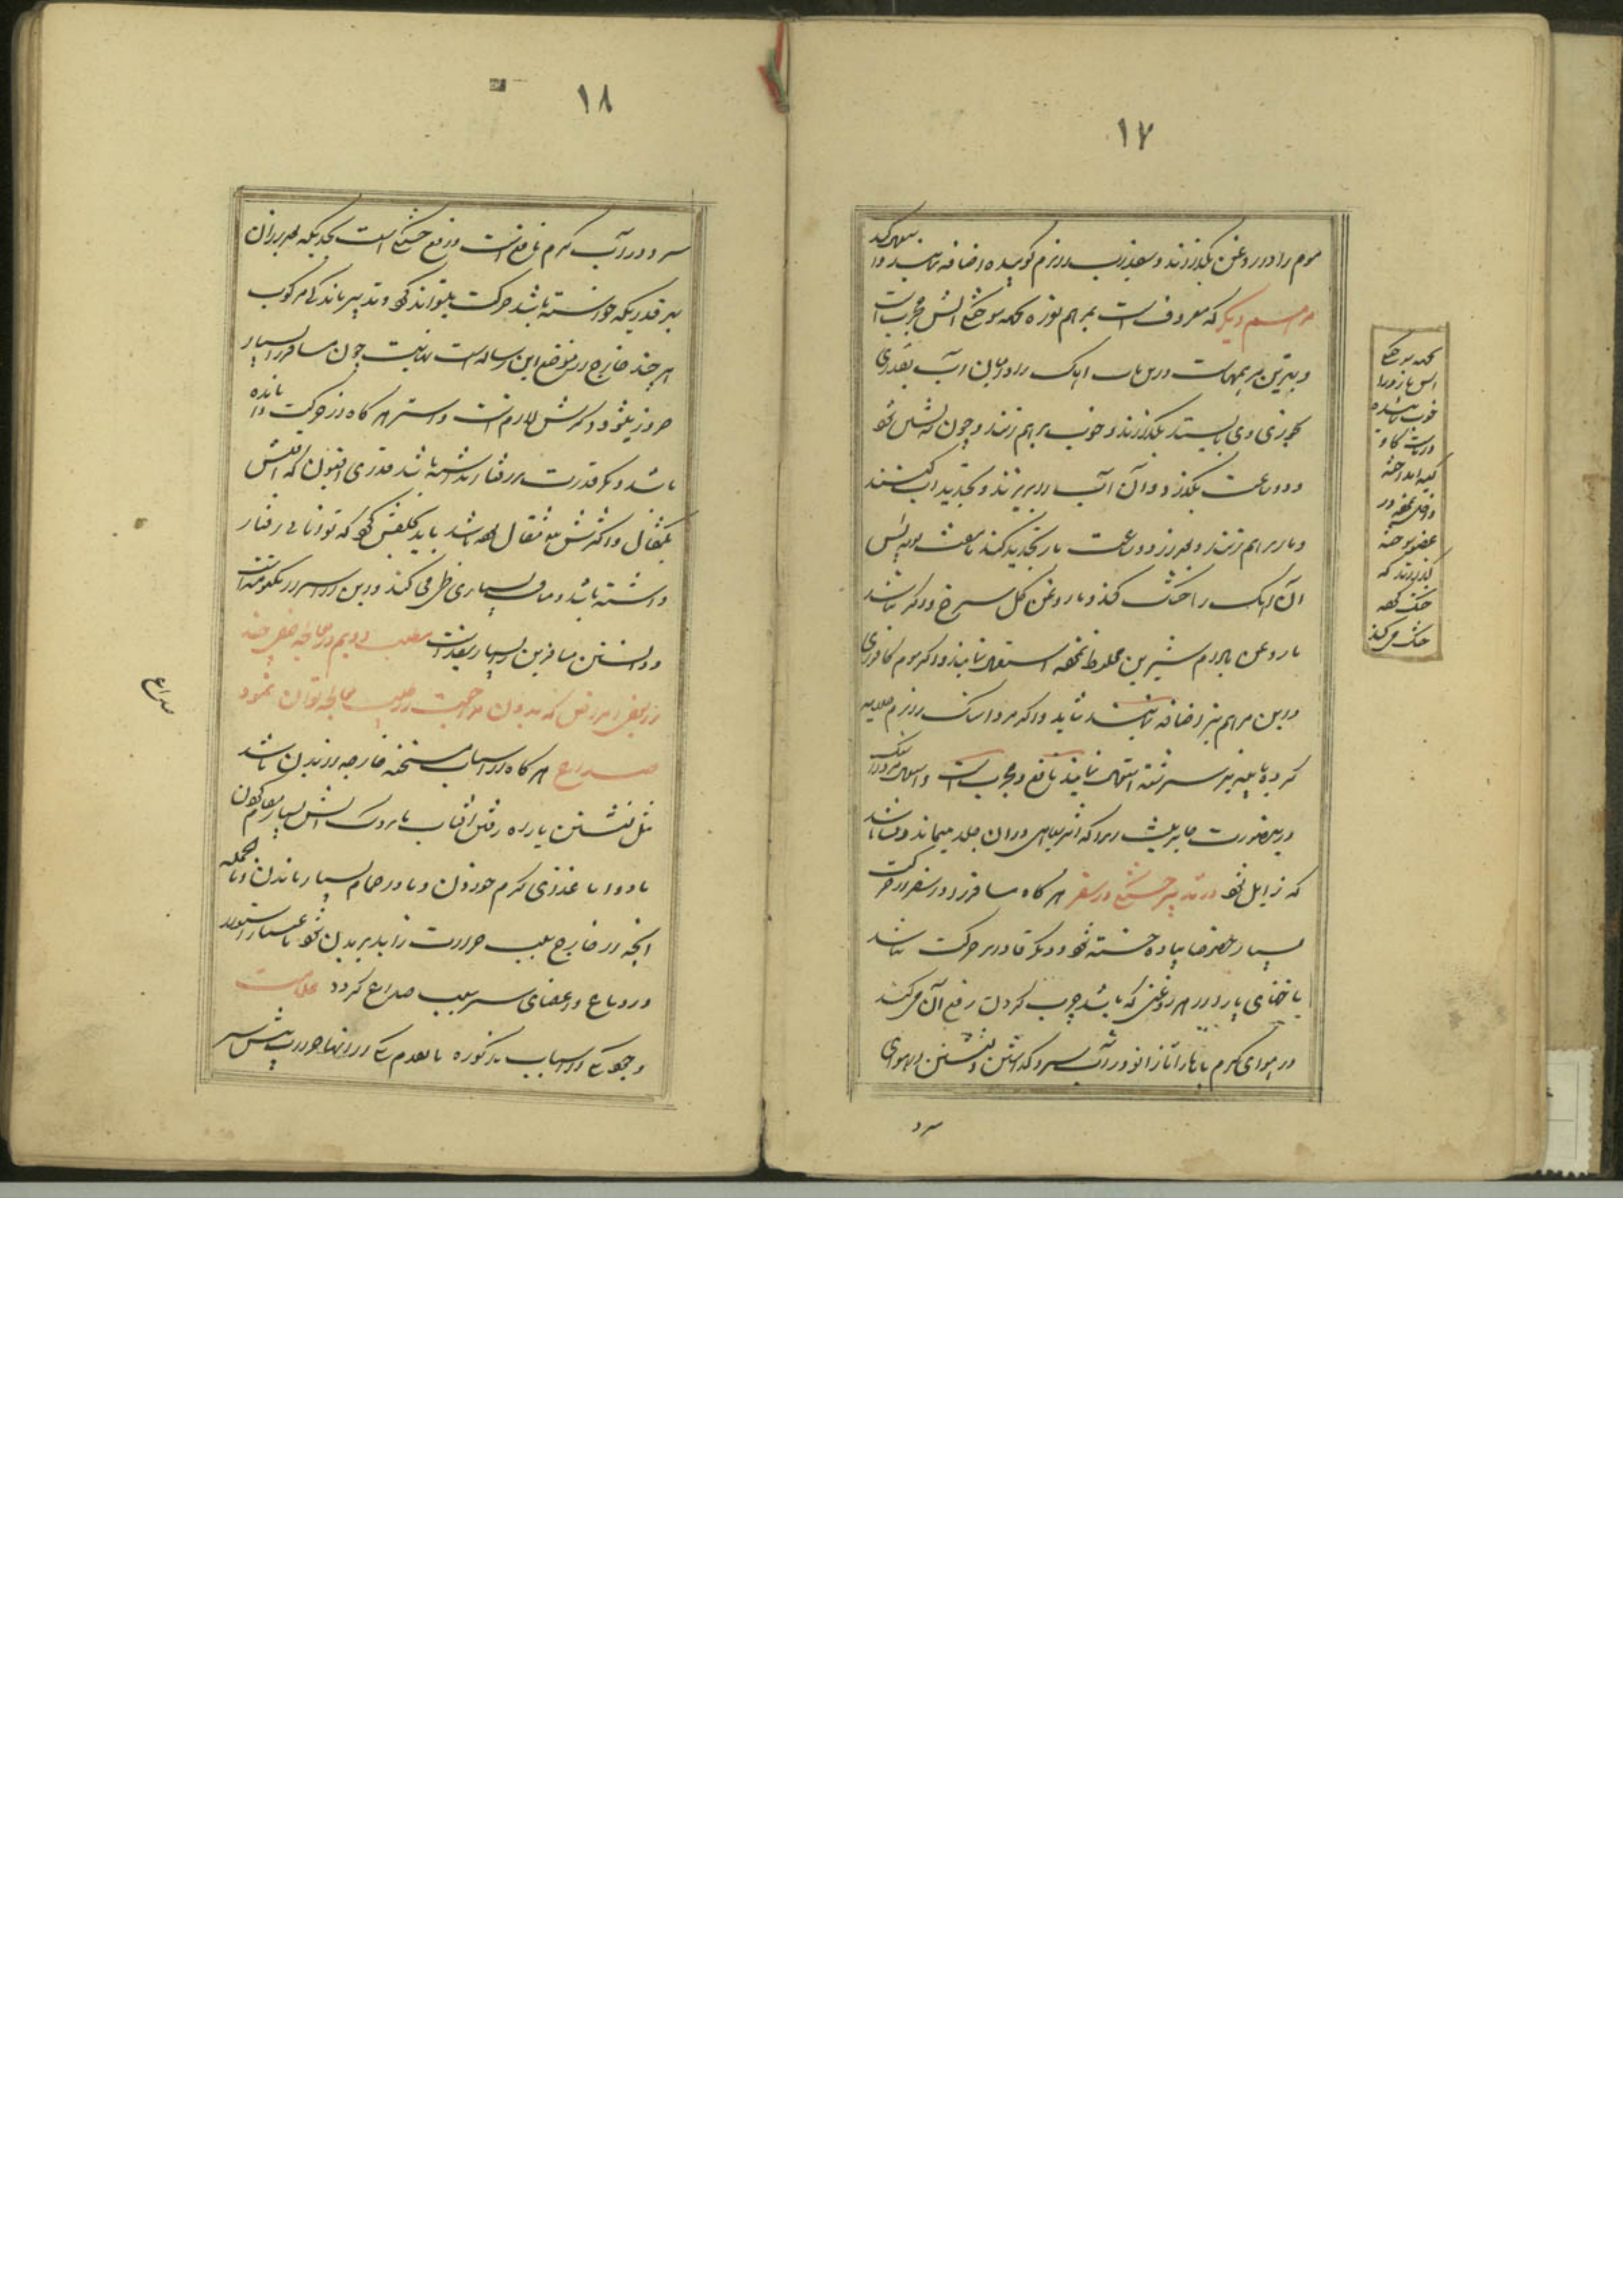 ۱۷
موم را در روغن بگذارند و سفیداب را نرم کوبیده اضافه نمایند و استعمال کنند
مرهم دیگر که معروف است بمرهم نوره بجهه سوختگی آتش مجرب است
و بهترین مرهمهاست درین باب آهک را در میان آب بقدری
بریزند و بگذارند و خوب برهم زنند و چون ته نشین شود
دو ساعت بگذارد و آن آب را بریزند و تجدید آب کنند
و باز برهم زنند و هر دو ساعت باز تجدید کنند تا هفت مرتبه پس
آن آهک را خشک کند و با روغن گل سرخ و اگر نباشد
با روغن بادام شیرین مخلوط نموده استعمال نمایند و اگر موم کافوری
درین مرهم نیز اضافه نمایند شاید و اگر مرداسنگ را نرم
کرده با پیه بز سرشته استعمال نمایند نافع و مجرب است و استعمال مرداسنگ
درین صورت جایز نیست زیرا که اثر سیاهی در آن جلد میماند
که زایل نشود در تدبیر خستگی در سفر هر گاه مسافر در سفر از حرکت
بسیار خصوصا پیاده خسته شود و دیگر قادر بر حرکت نباشد
با خنای پا را در هر روغنی که باشد چرب کردن رفع آن میکند
در هوای گرم پاها را تا زانو در آب سرد گذاشتن و نشستن در هوای
سرد
بجهه سوختگی
آتش تازه را
خوب
پوست گاو
عضو سوخته
بگذارند که
خشک کرده
خشک میکند
۱۸
سرد و در آب گرم نافع است و رفع خستگی است بحدیکه بعد از آن
بهر قدریکه خواسته باشد حرکت بتواند کرد و تدبیر ماندگی مرکوب
هر چند خارج از موضع این رساله است نهایت چون مسافر را بسیار
ضرور میشود ذکرش لازم است و استر هر گاه از حرکت وا مانده
باشد و دیگر قدرت بر رفتار نداشته باشد قدری افیون که اقلش
یکمثقال و اکثرش سه مثقال بوده باشد باید بحلقش کرد که توانائی رفتار
داشته باشد و مسافت بسیاری طی می کند و این از اسرار مکتومه است
و دانستن مسافرین را بسیار مفید است مطلب دویم در معالجه بعضی چند
از بعضی امراض که بدون مراجعت طبیب معالجه توان نمود
صداع هر گاه از اسباب مسخنه خارجه از بدن باشد
مثل نشستن یا راه رفتن آفتاب یا نزدیک آتش بسیار مقام کردن
یا دوا یا غذای گرم خوردن و یا در حمام بسیار ماندن و بالجمله
آنچه از خارج سبب حرارت زاید بر بدن شود باعث
در دماغ و اعضای سر سبب صداع گردد علامت
وجود یکی از اسباب مذکوره یا تقدم یکی از آنها حرارت پیش سر
صداع